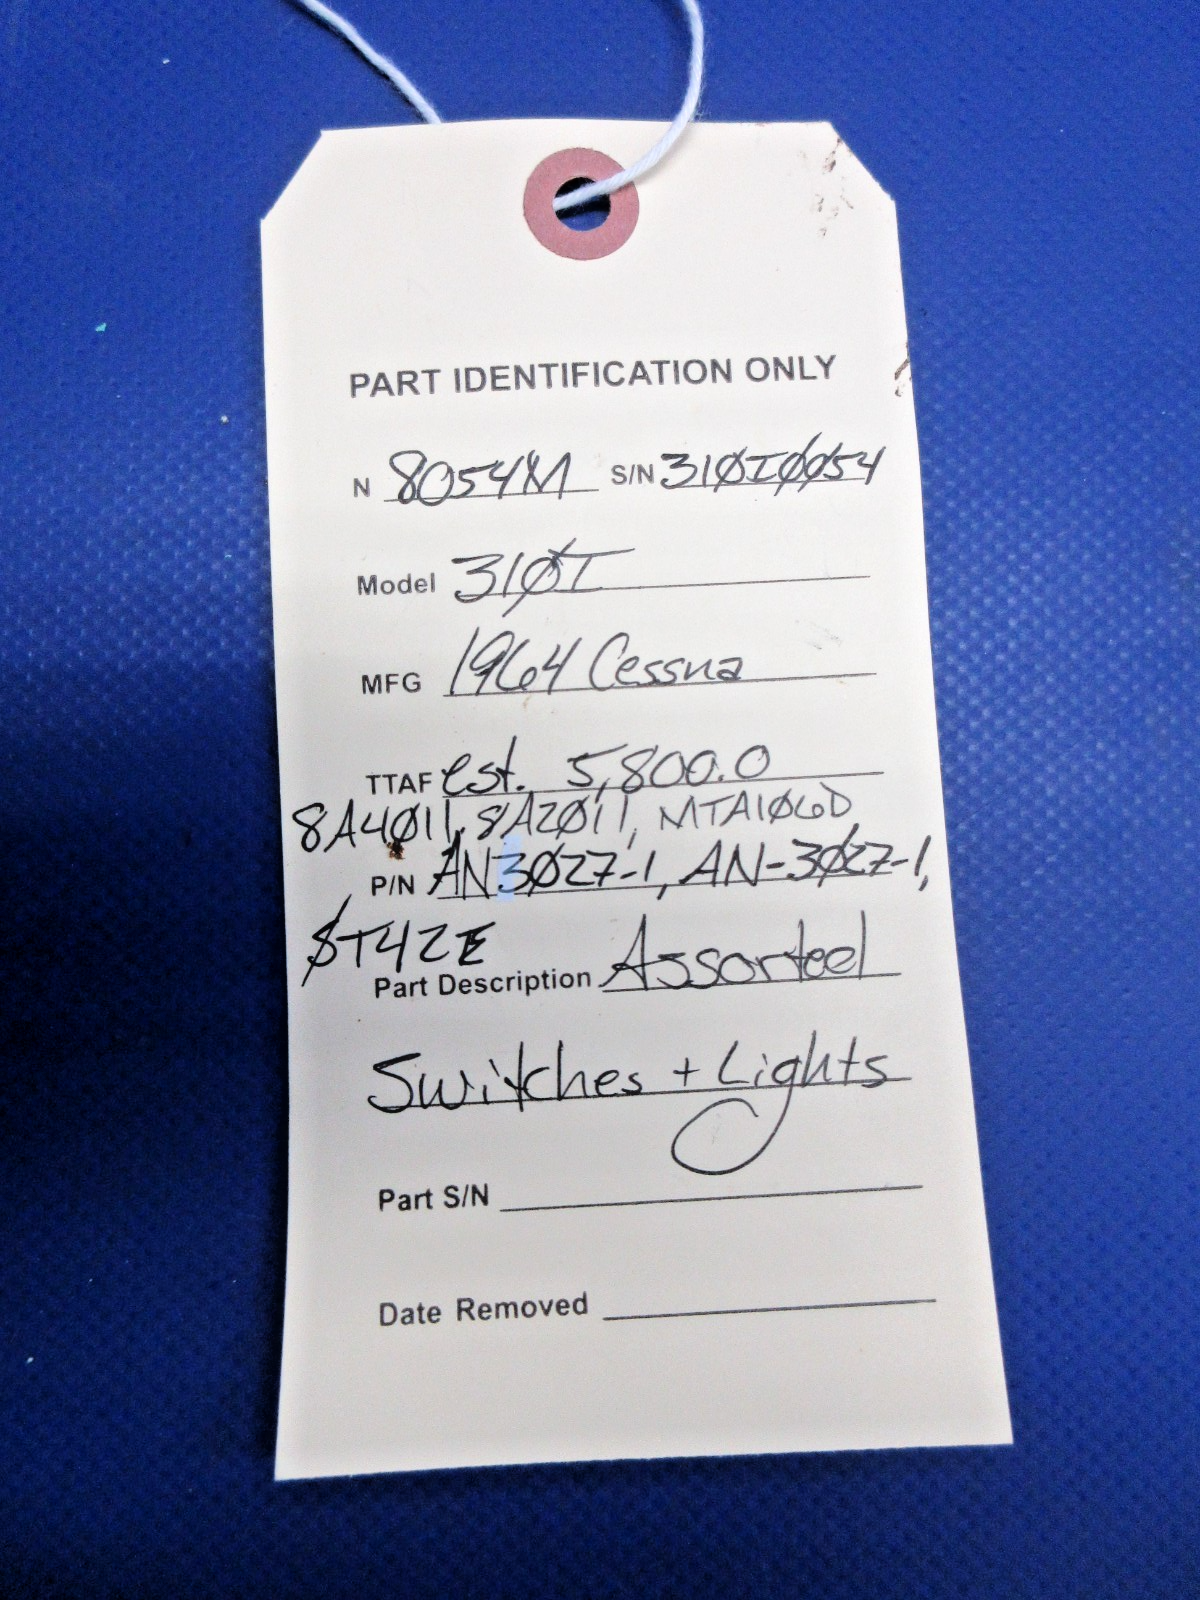 PART IDENTIFICATION ONLY
N 8054M S/N 310I0054
Model 310I
MFG 1964 Cessna
TTAF est. 5,800.0
8A4011, 8A2011, MTA106D
P/N AN3027-1, AN-3027-1,
ST42E
Part Description Assorted
Switches + Lights
Part S/N
Date Removed